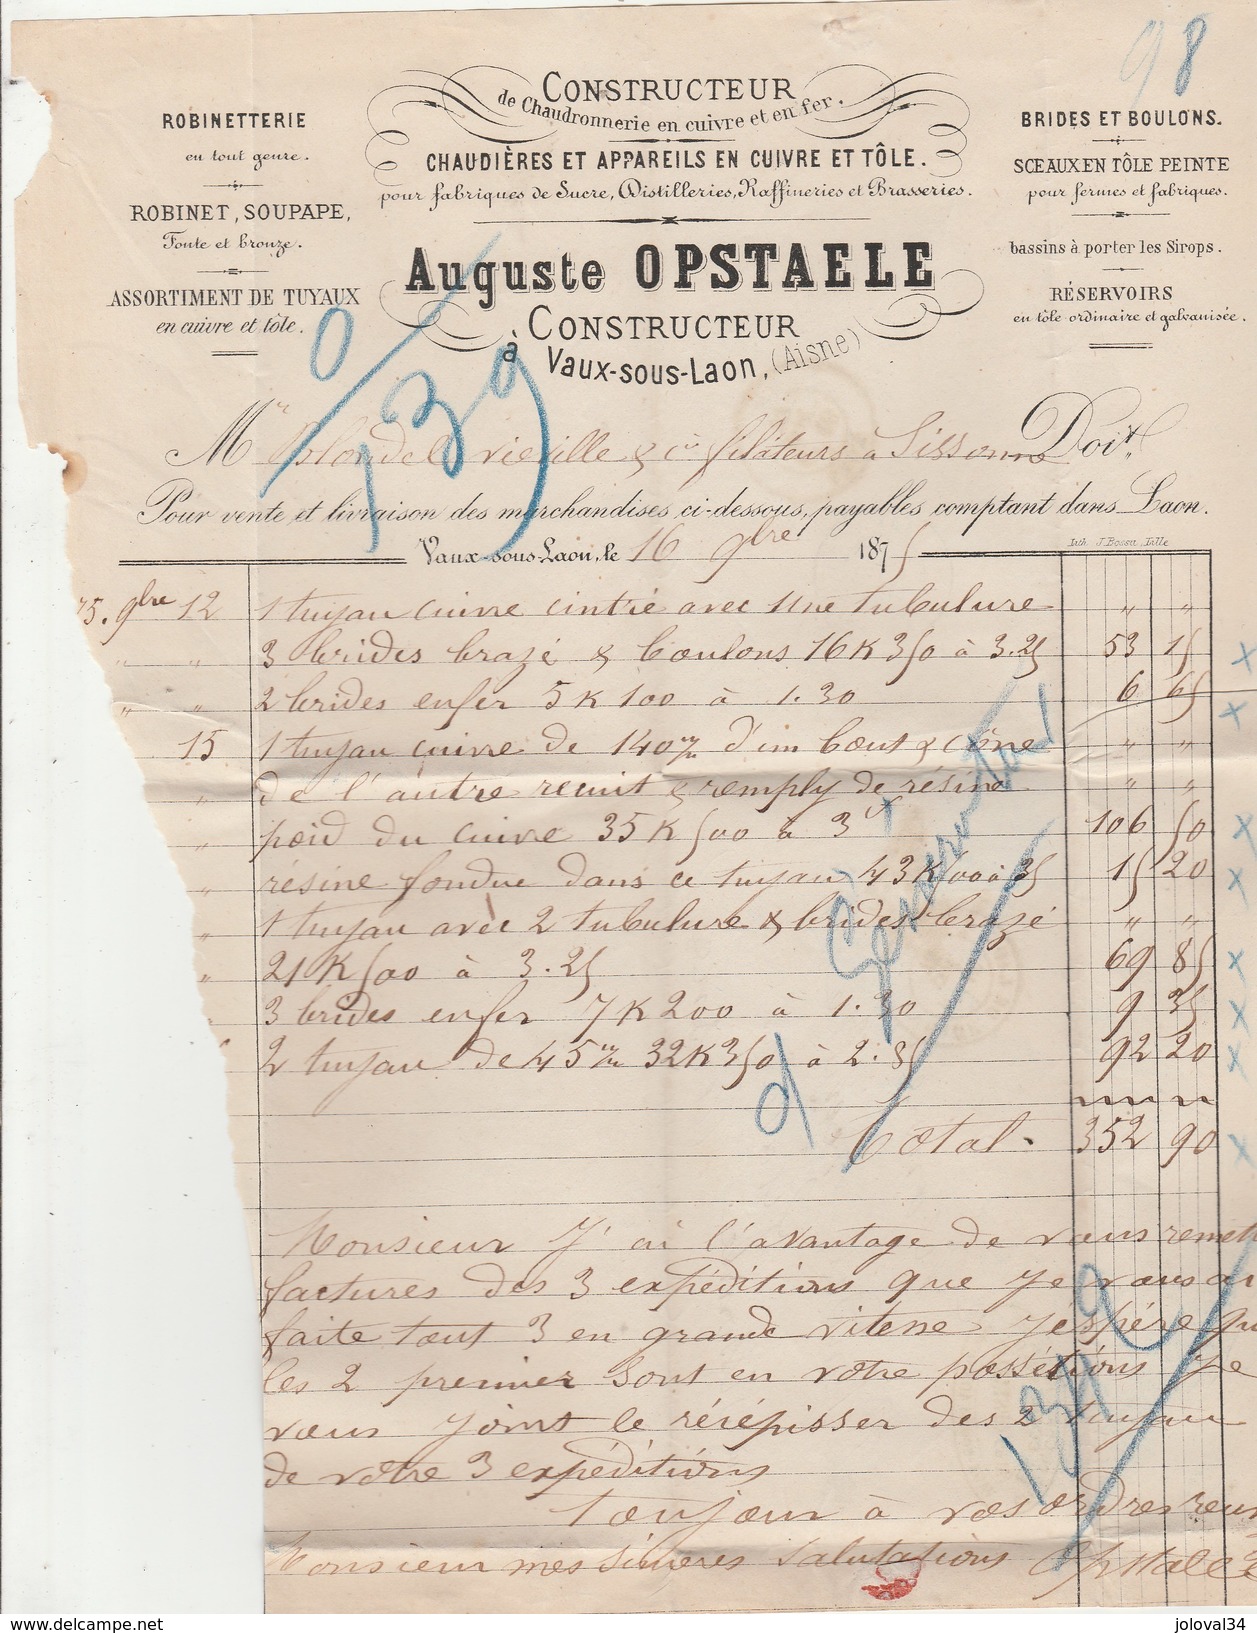 98
CONSTRUCTEUR
de Chaudronnerie en cuivre et en fer.
CHAUDIÈRES ET APPAREILS EN CUIVRE ET TÔLE.
pour fabriques de Sucre, Distilleries, Raffineries et Brasseries.
ROBINETTERIE
en tout genre.
ROBINET, SOUPAPE,
Fonte et bronze.
ASSORTIMENT DE TUYAUX
en cuivre et tôle.
BRIDES ET BOULONS.
SCEAUX EN TÔLE PEINTE
pour fermes et fabriques.
bassins à porter les Sirops.
RÉSERVOIRS
en tôle ordinaire et galvanisée.
Auguste OPSTAELE
CONSTRUCTEUR
à VAUX-SOUS-LAON, (Aisne)
139
Mr Blondel vieville & Cie filateurs à Sissonne Doit
Pour vente et livraison des marchandises ci-dessous, payables comptant dans Laon.
Lith. J. Bossu, Lille
Vaux-sous-Laon, le 16 9bre 1875
75. 9bre 12 1 tuyau cuivre cintré avec une tubulure " "
" " 3 brides brazé & boulons 16 K 350 à 3.25 53 15
" " 2 brides en fer 5 K 100 à 1.30 6 65
15 1 tuyau cuivre de 140 m/m d'un bout & cône " "
" de l'autre recuit & remply de résine " "
" poid du cuivre 35 K 500 à 3 f 106 50
" résine fondue dans ce tuyau 43 K 400 à 35 15 20
" 1 tuyau avec 2 tubulure & brides brazé " "
" 21 K 500 à 3.25 69 85
3 brides en fer 7 K 200 à 1.30 9 35
2 tuyau de 45 m/m 32 K 350 à 2.85 92 20
Total. 352 90
Monsieur J'ai l'avantage de vous remett
factures des 3 expéditions que je vous ai
faite tout 3 en grande vitesse j'éspére qu
les 2 premier sont en votre possétions je
vous joint le récépisser des 2 tuyau
de votre 3 expéditions
toujour à vos ordres
Monsieur mes sinceres Salutations Opstaele
139
joloval34